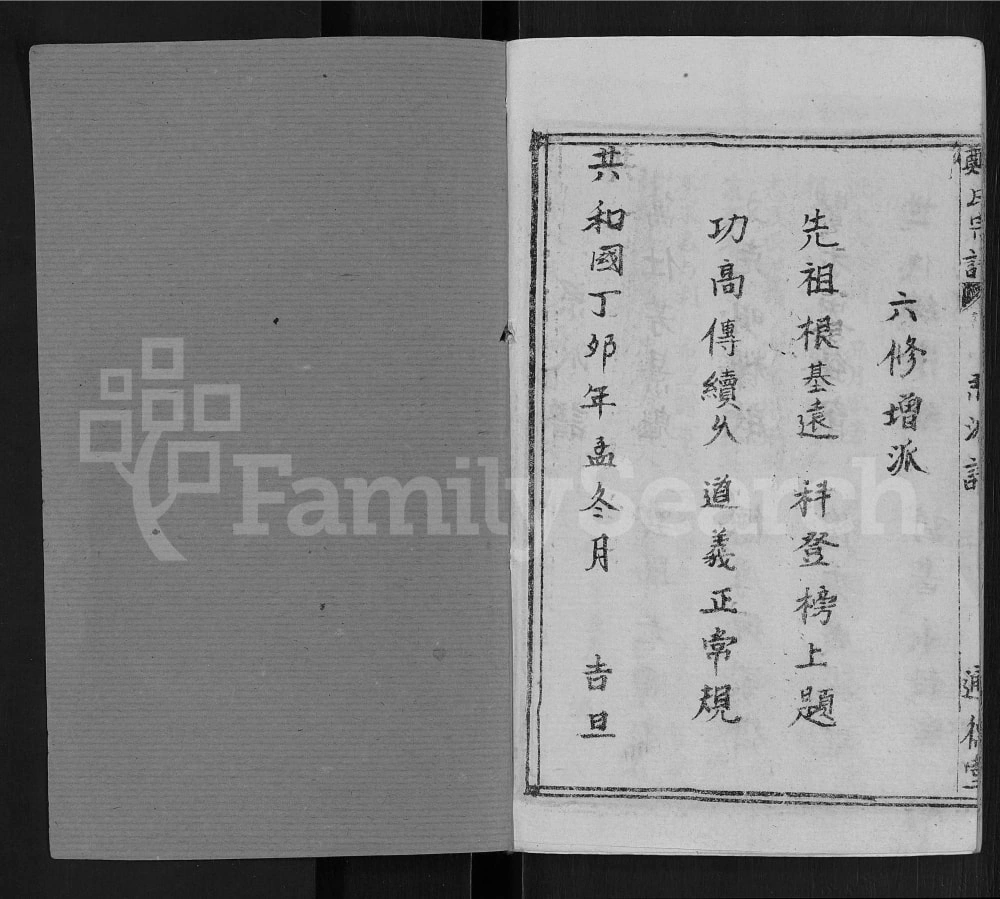 鄭氏宗譜
派譜
通德堂
六修增派
先祖根基遠 科登榜上題
功高傳續久 道義正常規
共和國丁卯年孟冬月 吉旦
FamilySearch